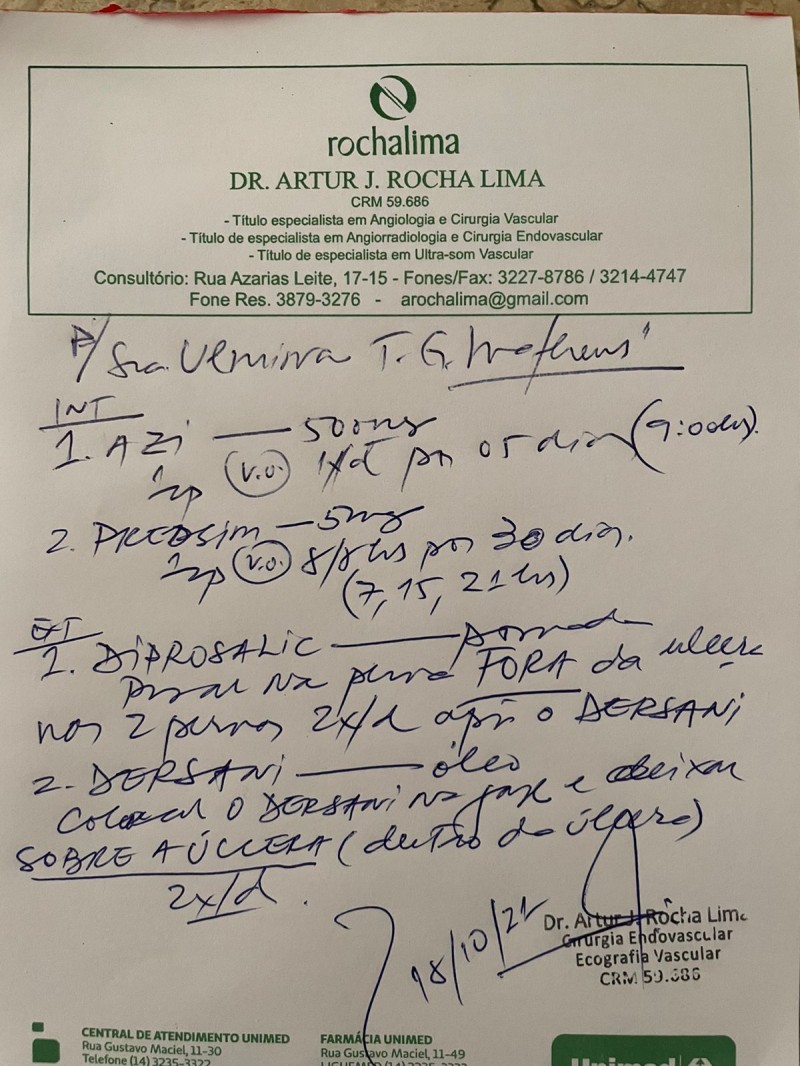 rochalima
DR. ARTUR J. ROCHA LIMA
CRM 59.686
- Título especialista em Angiologia e Cirurgia Vascular
- Título de especialista em Angiorradiologia e Cirurgia Endovascular
- Título de especialista em Ultra-som Vascular
Consultório: Rua Azarias Leite, 17-15 - Fones/Fax: 3227-8786 / 3214-4747
Fone Res. 3879-3276 - arochalima@gmail.com
P/ Sra. T. G. Matheus
INT
1. AZI — 500mg
1cp (V.O.) 1x/d por 05 dias (9:00hs).
2. PREDSIM — 5mg
1cp (V.O.) 8/8hs por 30 dias.
(7, 15, 21hs)
EXT
1. DIPROSALIC — pomada
Passar na perna FORA da úlcera
nas 2 pernas 2x/d após o DERSANI
2. DERSANI — óleo
Colocar O DERSANI na gaze e deixar
SOBRE A ÚLCERA (dentro da úlcera)
2x/d.
18/10/21
Dr. Artur J. Rocha Lima
Cirurgia Endovascular
Ecografia Vascular
CRM 59.686
CENTRAL DE ATENDIMENTO UNIMED
Rua Gustavo Maciel, 11-30
Telefone (14) 3235-3322
FARMÁCIA UNIMED
Rua Gustavo Maciel, 11-49
Unimed